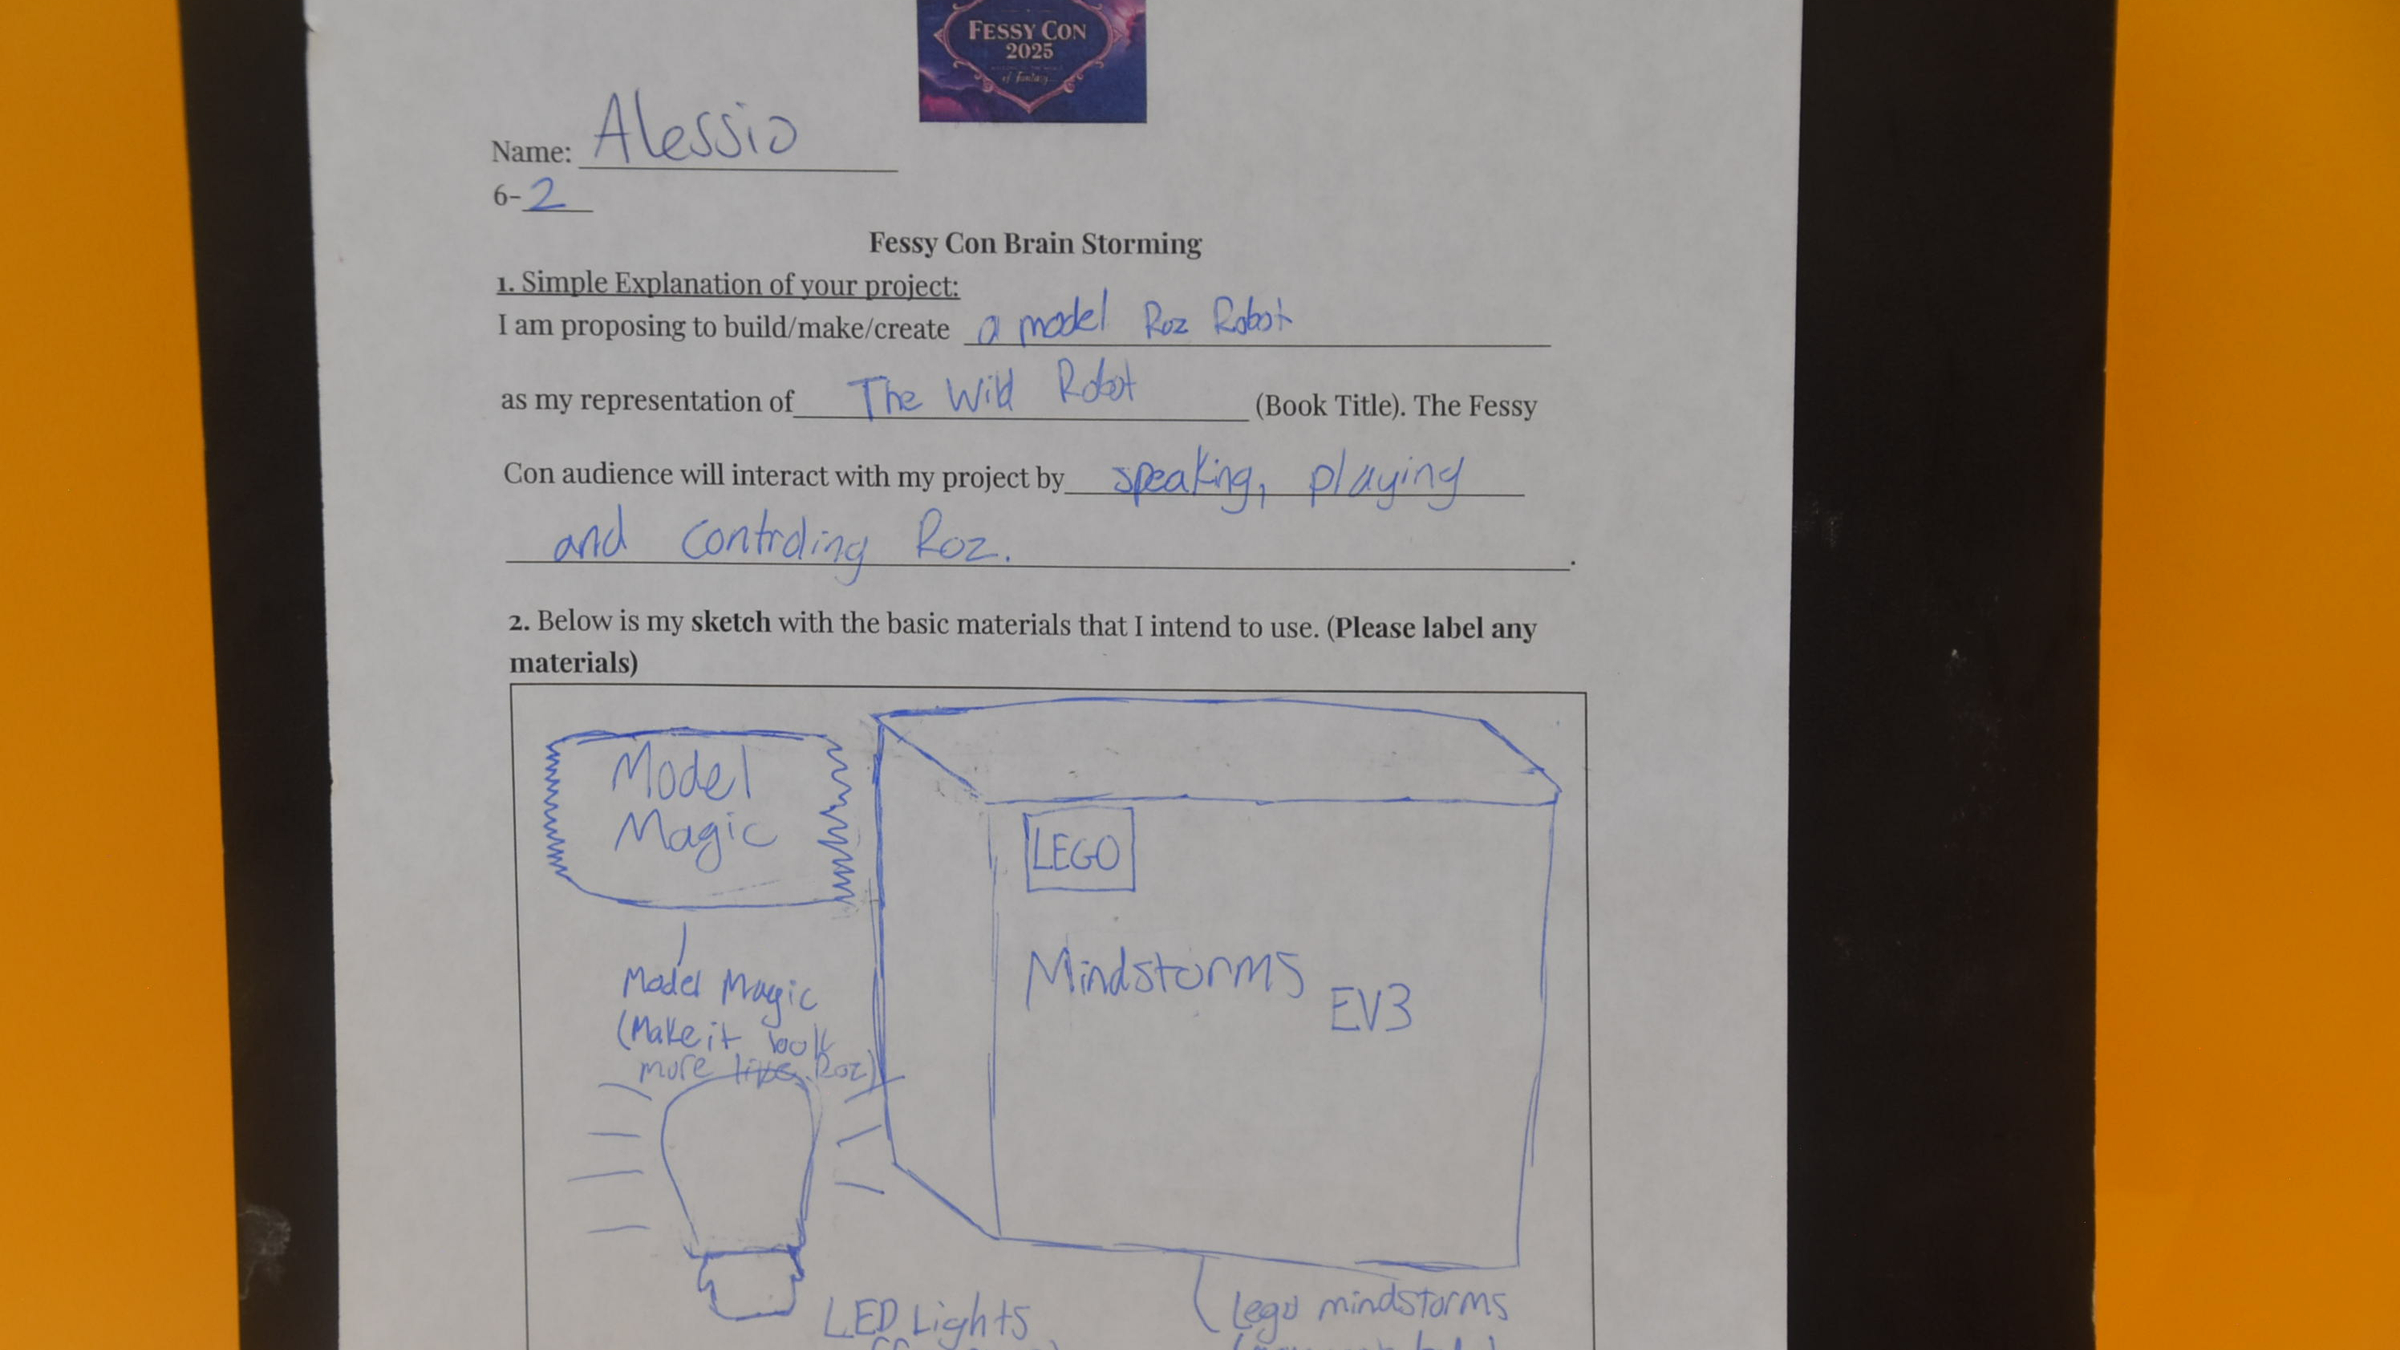 FESSY CON
2025
of Fantasy
Name: Alessio
6-2
Fessy Con Brain Storming
1. Simple Explanation of your project:
I am proposing to build/make/create a model Roz Robot
as my representation of The Wild Robot (Book Title). The Fessy
Con audience will interact with my project by speaking, playing
and controling Roz.
2. Below is my sketch with the basic materials that I intend to use. (Please label any
materials)
Model
Magic
LEGO
Mindstorms
EV3
Model Magic
(Make it look
more like Roz)
LED Lights
Lego mindstorms